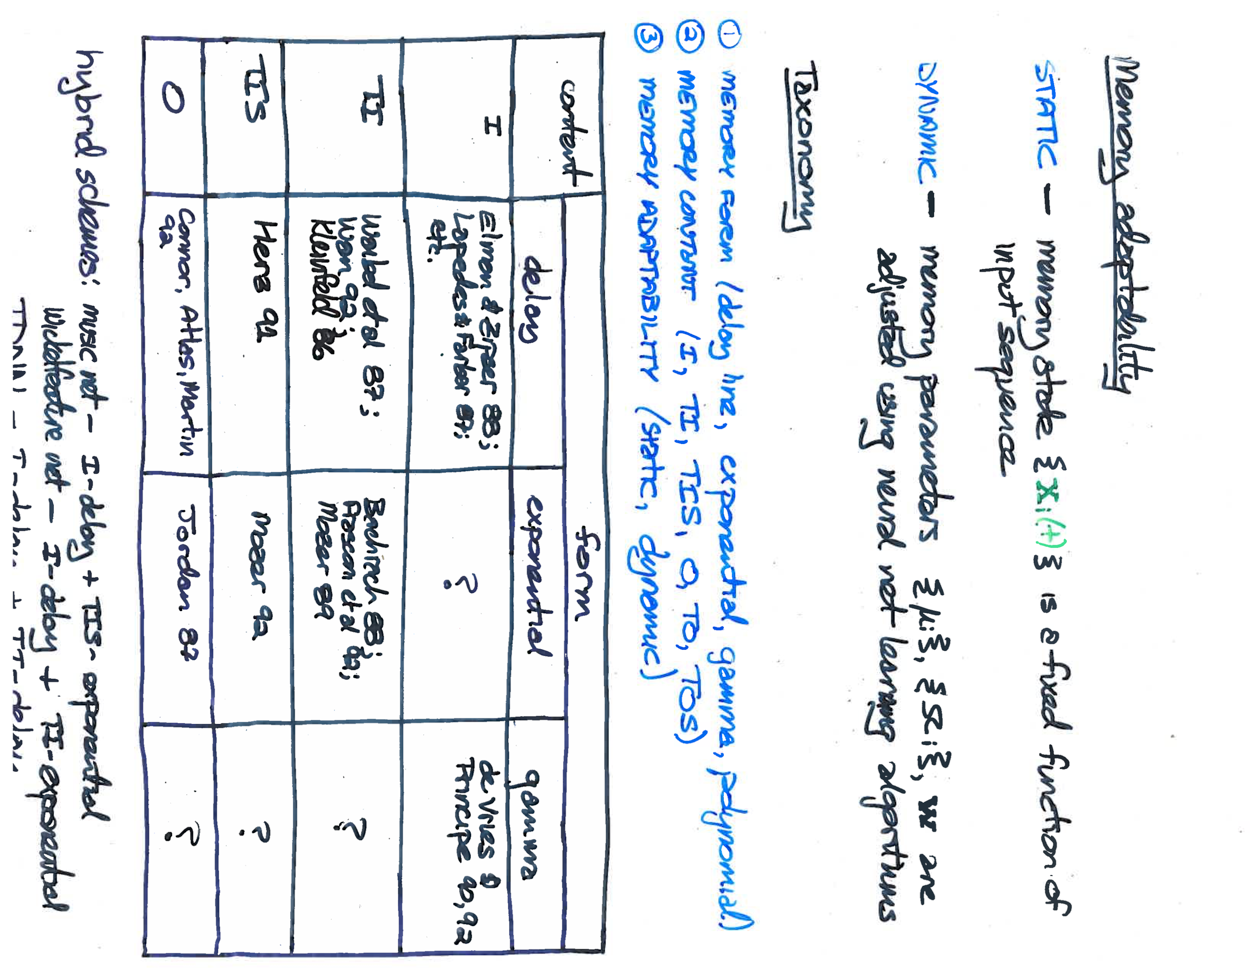 Memory adaptability
STATIC — memory state { xᵢ(t) } is a fixed function of
input sequence
DYNAMIC — memory parameters {μᵢ}, {Ωᵢ}, w are
adjusted using neural net learning algorithms
Taxonomy
① MEMORY FORM (delay line, exponential, gamma, polynomial)
② MEMORY CONTENT (I, TI, TIS, O, TO, TOS)
③ MEMORY ADAPTABILITY (static, dynamic)
form
content delay exponential gamma
I
Elman & Zipser 88;
Lapedes & Farber 87;
etc.
?
de Vries &
Principe 90, 92
TI
Waibel et al 87;
Wan 92;
Kleinfeld 86
Bachrach 88;
Frasconi et al 92;
Mozer 89
?
TIS
Herz 92
Mozer 92
?
O
Connor, Atlas, Martin
92
Jordan 87
?
hybrid schemes: music net – I-delay + TIS-exponential
Wickelfeature net – I-delay + TI-exponential